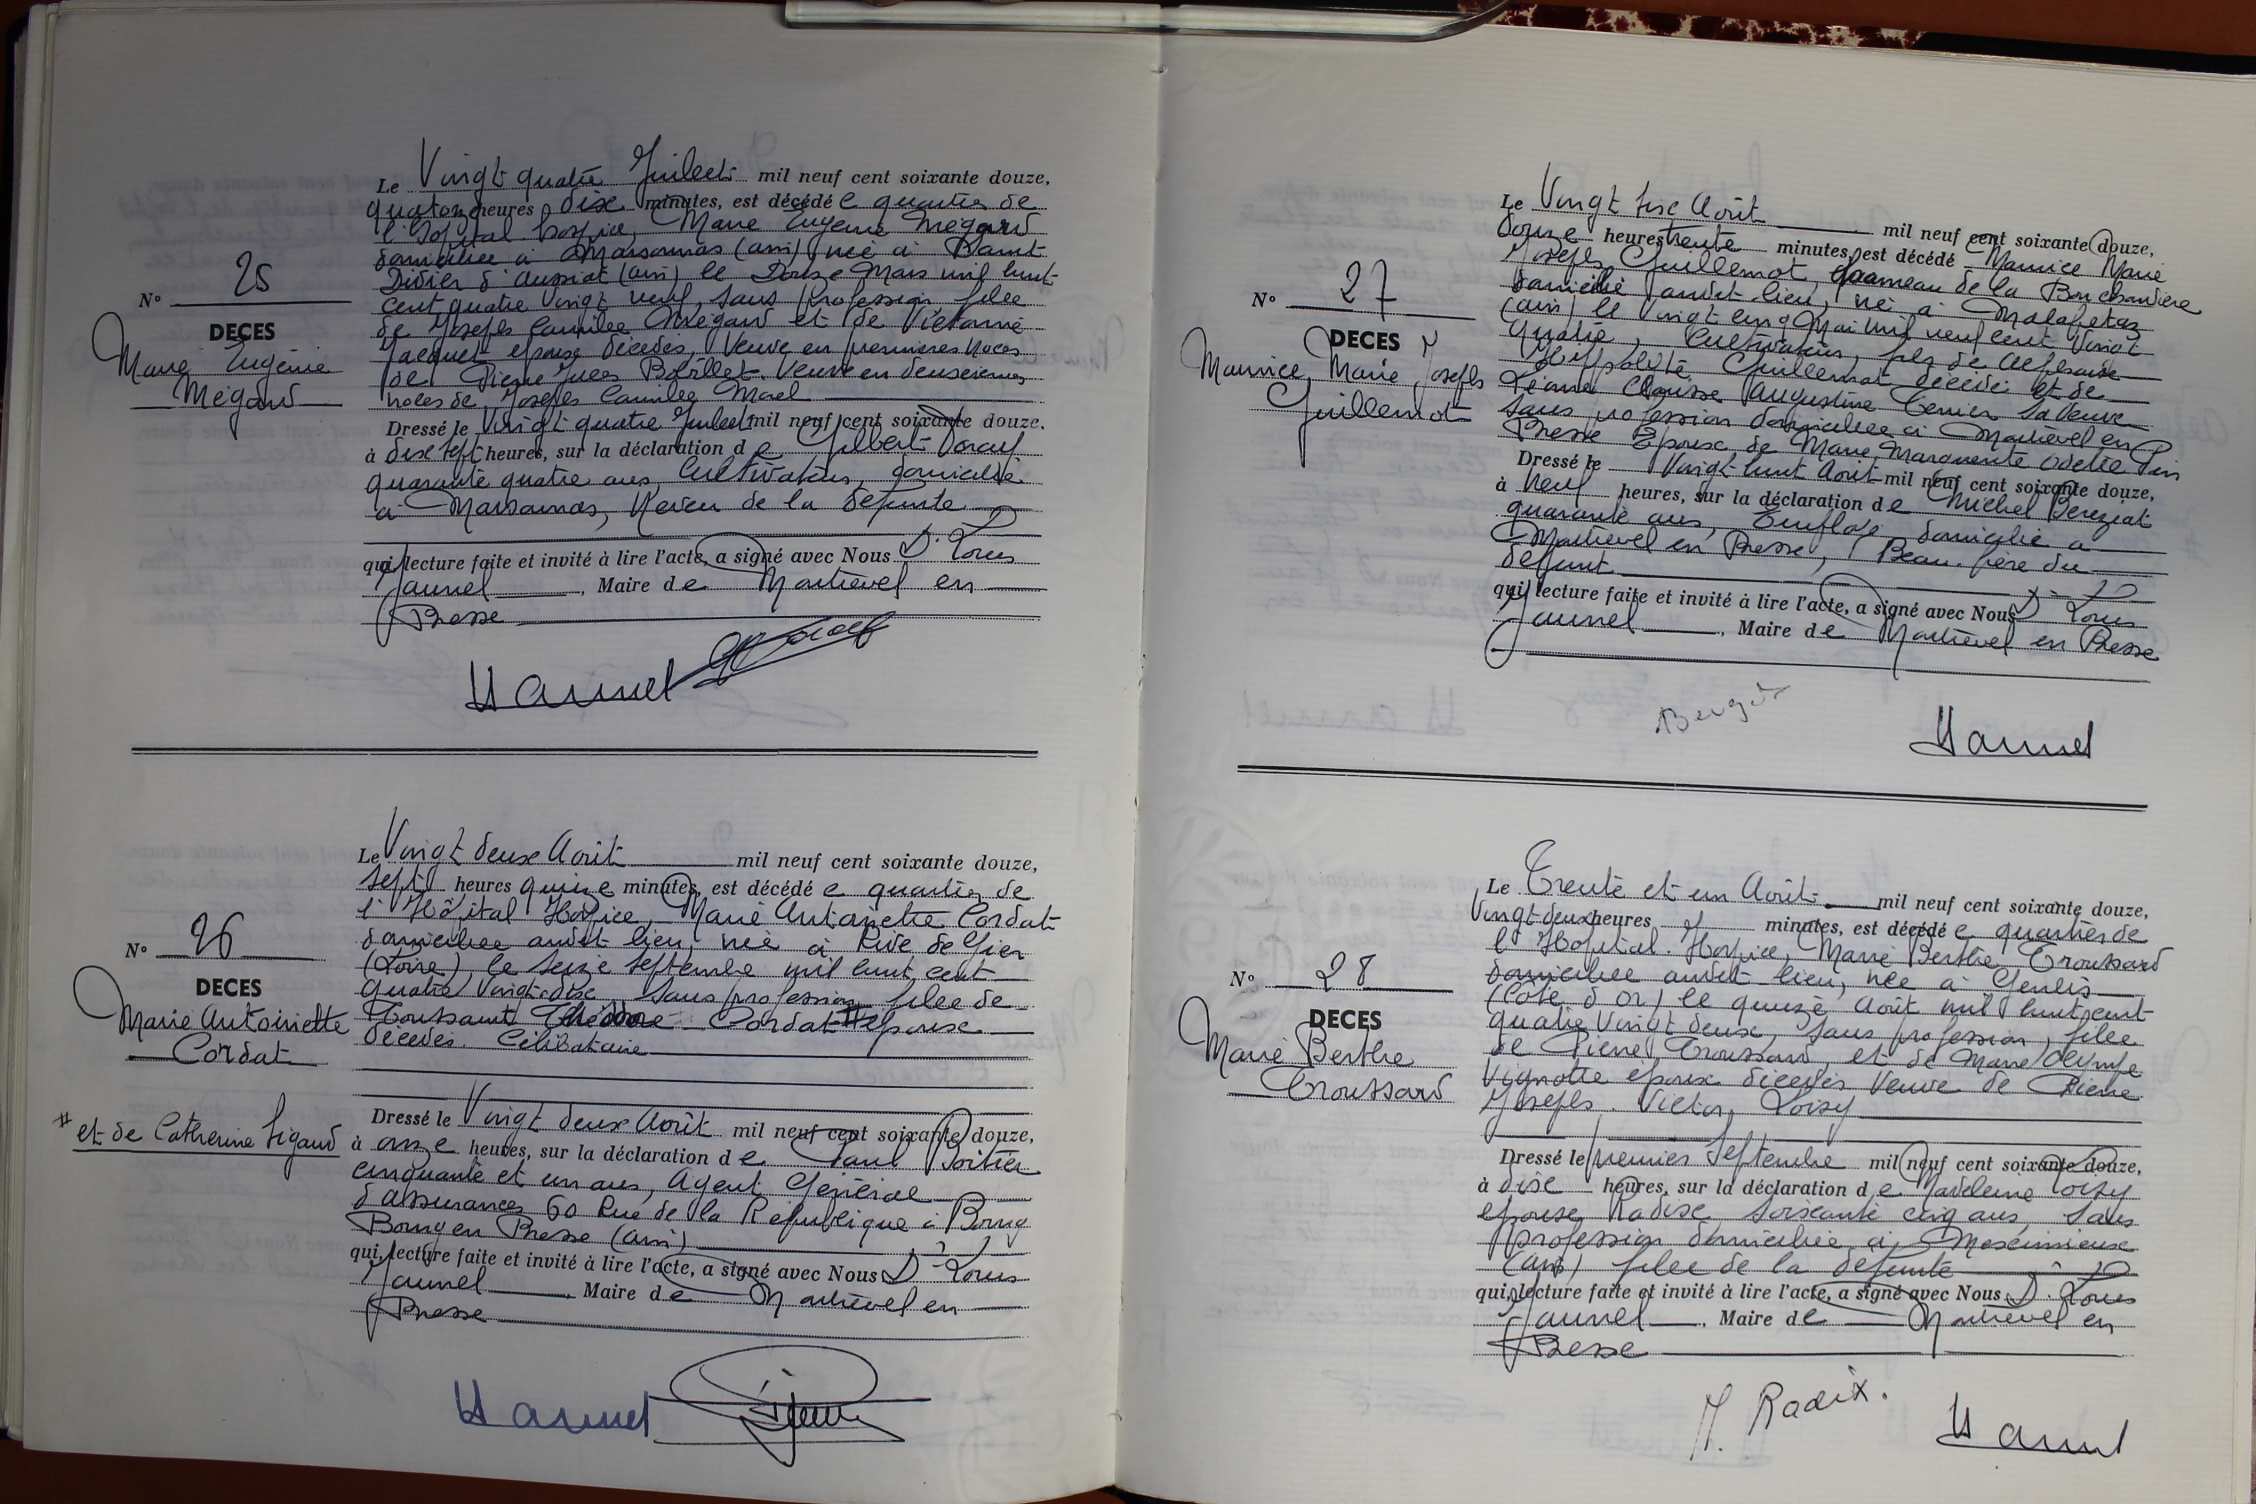 N° 25
DECES
Marie Eugénie
Mégard
Le Vingt quatre Juillet mil neuf cent soixante douze,
quatorze heures dix minutes, est décédé e quartier de
l'Hôpital hospice, Marie Eugénie Mégard
domiciliée à Marsonnas (ain) née à Saint
Didier d'Aussiat (ain) le Douze Mars mil huit
cent quatre vingt neuf, sans profession, fille
de Joseph Camille Mégard et de Victorine
Jacquet époux décédés, Veuve en premières noces
de Pierre Jules Bolillet. Veuve en deuxièmes
noces de Joseph Camille Morel
Dressé le Vingt quatre Juillet mil neuf cent soixante douze.
à dix sept heures, sur la déclaration d e Gilbert
quarante quatre ans, Cultivateur, domicilié
à Marsonnas, Neveu de la défunte
qui, lecture faite et invité à lire l'acte, a signé avec Nous Dr Louis
Jaunel, Maire d e Montrevel en
Bresse
N° 26
DECES
Marie Antoinette
Cordat
# et de Catherine Sigaud
Le Vingt deux Août mil neuf cent soixante douze,
Sept heures quinze minutes, est décédé e quartier de
l'Hôpital Hospice, Marie Antoinette Cordat
domiciliée audit lieu, née à Rive de Gier
(Loire), le seize septembre mil huit cent
quatre vingt dix. Sans profession, fille de
Toussaint Théodore Cordat # époux
décédés. Célibataire
Dressé le Vingt deux Août mil neuf cent soixante douze,
à onze heures, sur la déclaration d e Paul Poitier
cinquante et un ans, Agent Général
d'assurances 60 Rue de la République à Bourg
Bourg en Bresse (ain)
qui, lecture faite et invité à lire l'acte, a signé avec Nous Dr Louis
Jaunel, Maire d e Montrevel en
Bresse
N° 27
DECES
Maurice, Marie Joseph
Guillemot
Le Vingt six Août mil neuf cent soixante douze,
douze heures trente minutes, est décédé Maurice Marie
Joseph Guillemot, hameau de la Bouchardière
domicilié audit lieu, né à Malafretaz
(ain) le vingt cinq Mai mil neuf cent vingt
quatre, Cultivateur, fils de Alphonse
Hippolyte Guillemot décédé et de
Jeanne Clarisse Augustine Terrier sa veuve
sans profession domiciliée à Montrevel en
Bresse Epoux de Marie Marguerite Odette Pin
Dressé le Vingt huit Août mil neuf cent soixante douze,
à Neuf heures, sur la déclaration d e Michel Bereziat
quarante ans, Employé, domicilié à
Montrevel en Bresse, Beau-frère du
défunt
qui, lecture faite et invité à lire l'acte, a signé avec Nous Dr Louis
Jaunel, Maire d e Montrevel en Bresse
N° 28
DECES
Marie Berthe
Troussard
Le Trente et un Août mil neuf cent soixante douze,
Vingt deux heures minutes, est décédé e quartier de
l'Hôpital-Hospice, Marie Berthe Troussard
domiciliée audit lieu, née à Genlis
(Côte d'Or) le quinze Août mil huit cent
quatre Vingt deux, sans profession, fille
de Pierre Troussard et de Marie Olympe
Vignotte époux décédés Veuve de Pierre
Joseph. Victor, Loisy
Dressé le premier Septembre mil neuf cent soixante douze,
à dix heures, sur la déclaration d e Madeleine Loisy
épouse Radix, soixante cinq ans, sans
profession domiciliée à Meximieux
(ain) fille de la défunte
qui, lecture faite et invité à lire l'acte, a signé avec Nous Dr Louis
Jaunel, Maire d e Montrevel en
Bresse
M. Radix.